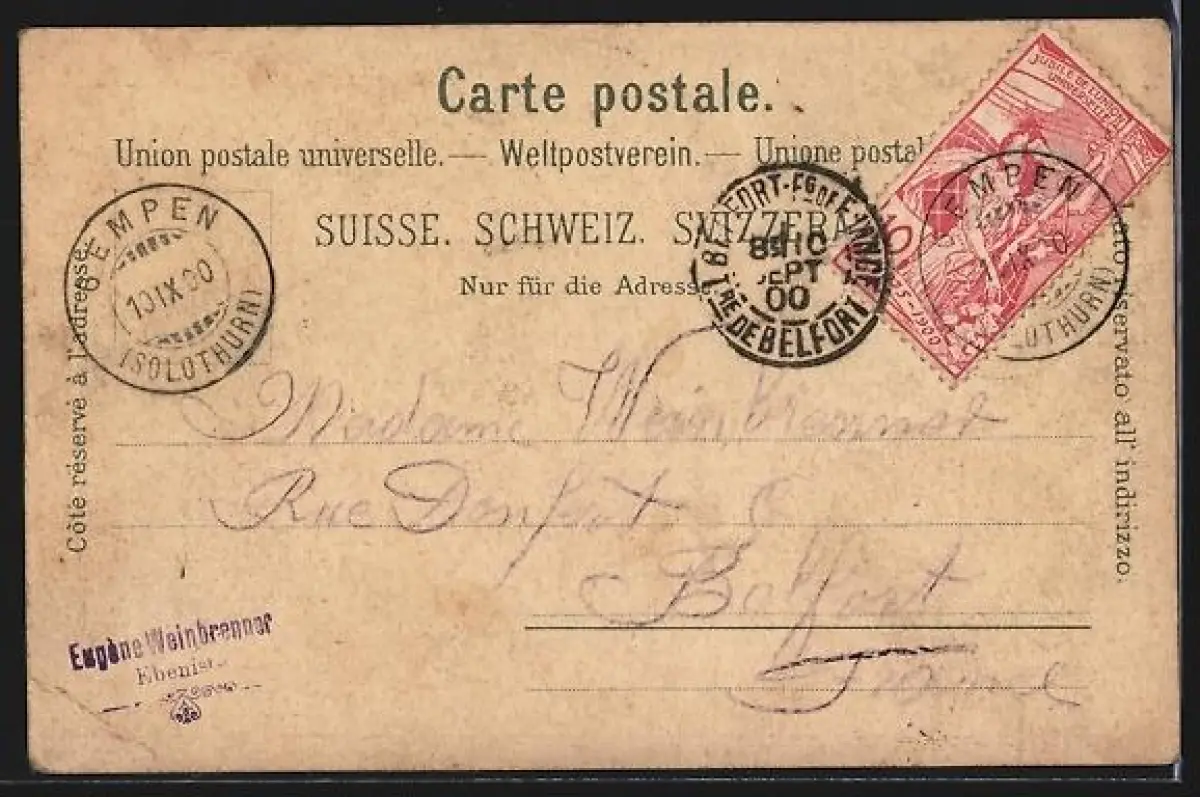 Carte postale.
Union postale universelle. — Weltpostverein. — Unione postal
SUISSE. SCHWEIZ. SVIZZERA
Nur für die Adresse
Côté réservé à l'adresse.
riservato all' indirizzo.
GEMPEN
10 IX 00
(SOLOTHURN)
BELFORT-FG DE
10
SEPT
00
DE BELFORT
JUBILÉ DE L'UNION
10
1900
EMPEN
LOTHURN)
Madame Weinbrenner
Rue Denfert
Belfort
France
Eugène Weinbrenner